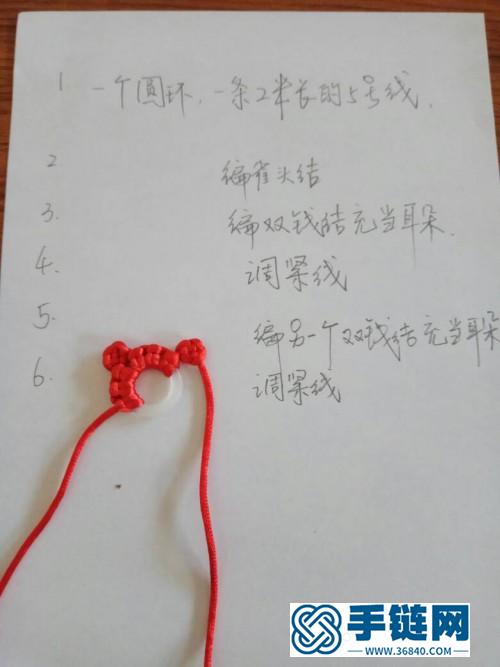 1 一个圆环，一条2米长的5号线．
2 编雀头结
3. 编双钱结充当耳朵．
4. 调紧线
5. 编另一个双钱结充当耳朵
6. 调紧线
手链网
WWW.36840.COM